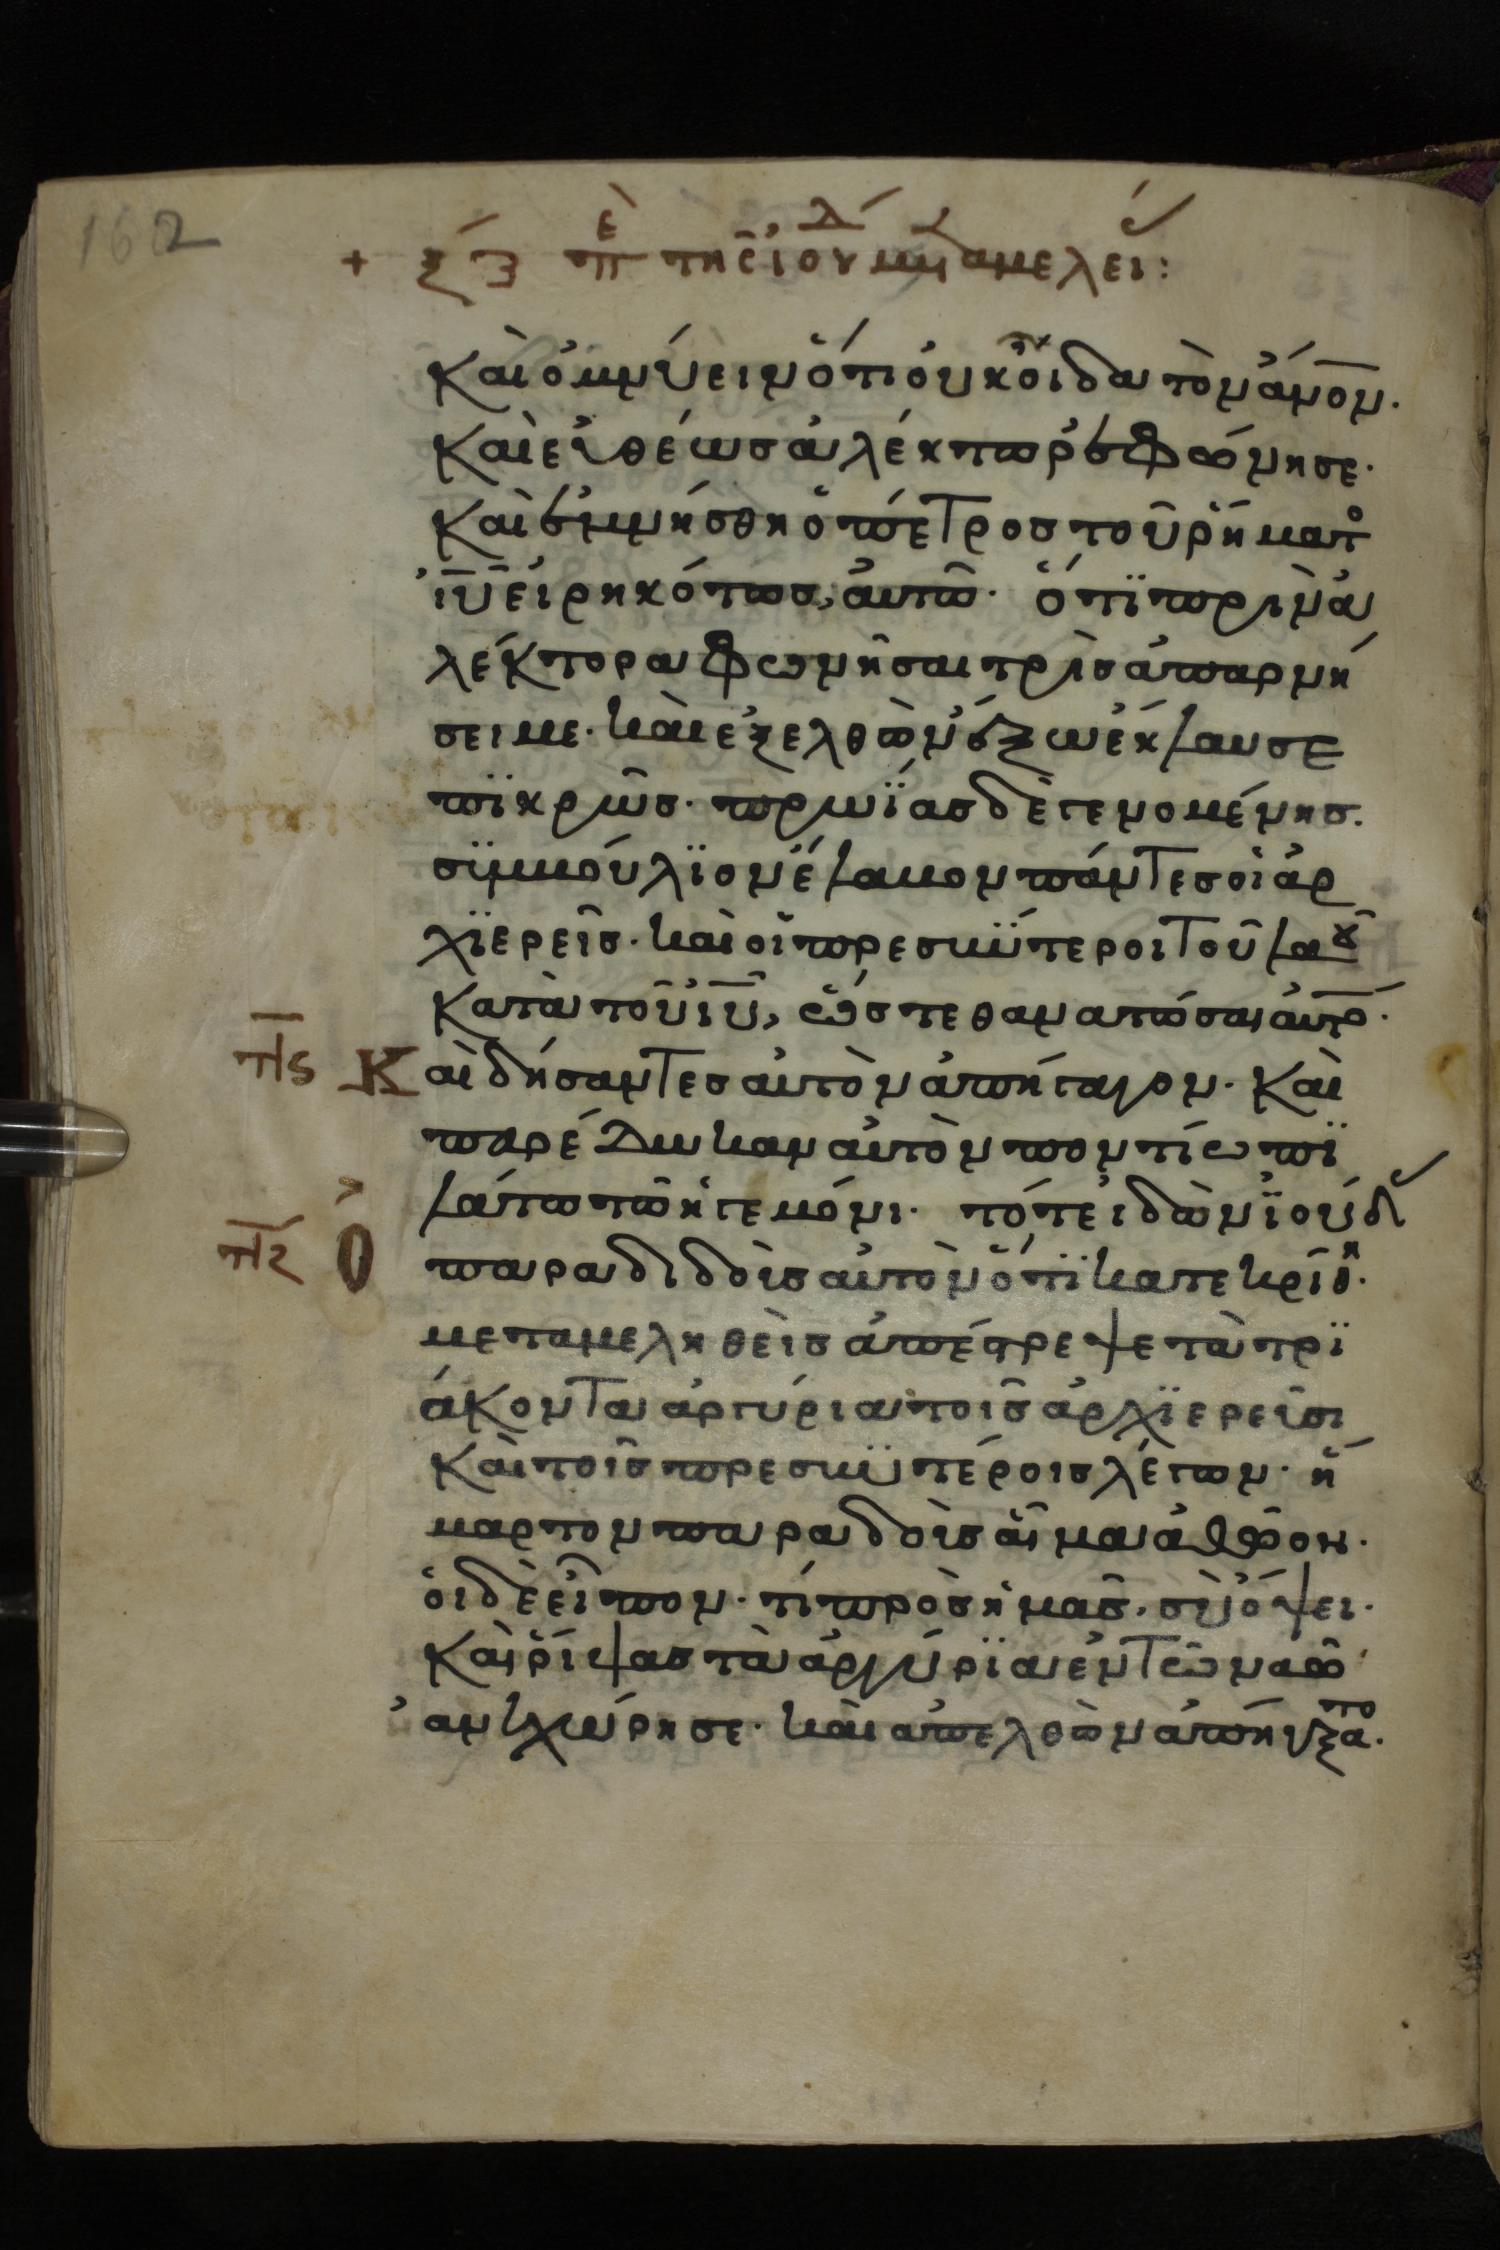 162
+ ξ́ζ πε τῆς ἰούδα μεταμελεί:
καὶ ὀμνύειν ὅτι οὐκ οἶδα τὸν ἄνον.
καὶ εὐθέως ἀλέκτωρ ἐφώνησε.
καὶ ἐμνήσθη ὁ πέτρος τοῦ ῥήματο
ἰῦ εἰρηκότως, ἀυτῶ. ὅτϊ πρὶν ἀ
λέκτορα φωνῆσαι τρὶς ἀπαρνή
σει με. καὶ ἐξελθὼν ἔξω ἔκλαυσε
πϊκρῶς. πρωΐας δὲ γενομένης.
σϋμβούλϊον ἔλαβον πάντες οἱ ἀρ
χϊερεῖς. καὶ οἱ πρεσβϋτεροι τοῦ λαοῦ
κατὰ τοῦ ἰῦ, ὥστε θανατῶσαι ἀυτό.
πς Καὶ δήσαντες ἀυτὸν ἀπήγαγον. καὶ
παρέδωκαν ἀυτὸν ποντίω πϊ
λάτω τῶ ἡγεμόνι. τότε ἰδὼν ϊούδ
πζ Ὁ παραδιδοὺς ἀυτὸν ὅτϊ κατεκρίθη.
μεταμεληθεὶς ἀπέστρεψε τὰ τρϊ
άκοντα ἀργύρια τοῖς ἀρχϊερεῦσι
καὶ τοῖς πρεσβϋτέροις λέγων. ἥ
μαρτον παραδοὺς αἷμα ἀθῶον.
ὁι δὲ εἶπον. τί πρὸς ἡμᾶς, σὺ ὄψει.
καὶ ῥίψας τὰ ἀργύρϊα ἐν τῶ ναῶ
ἀνεχώρησε. καὶ ἀπελθὼν ἀπήγξατο.